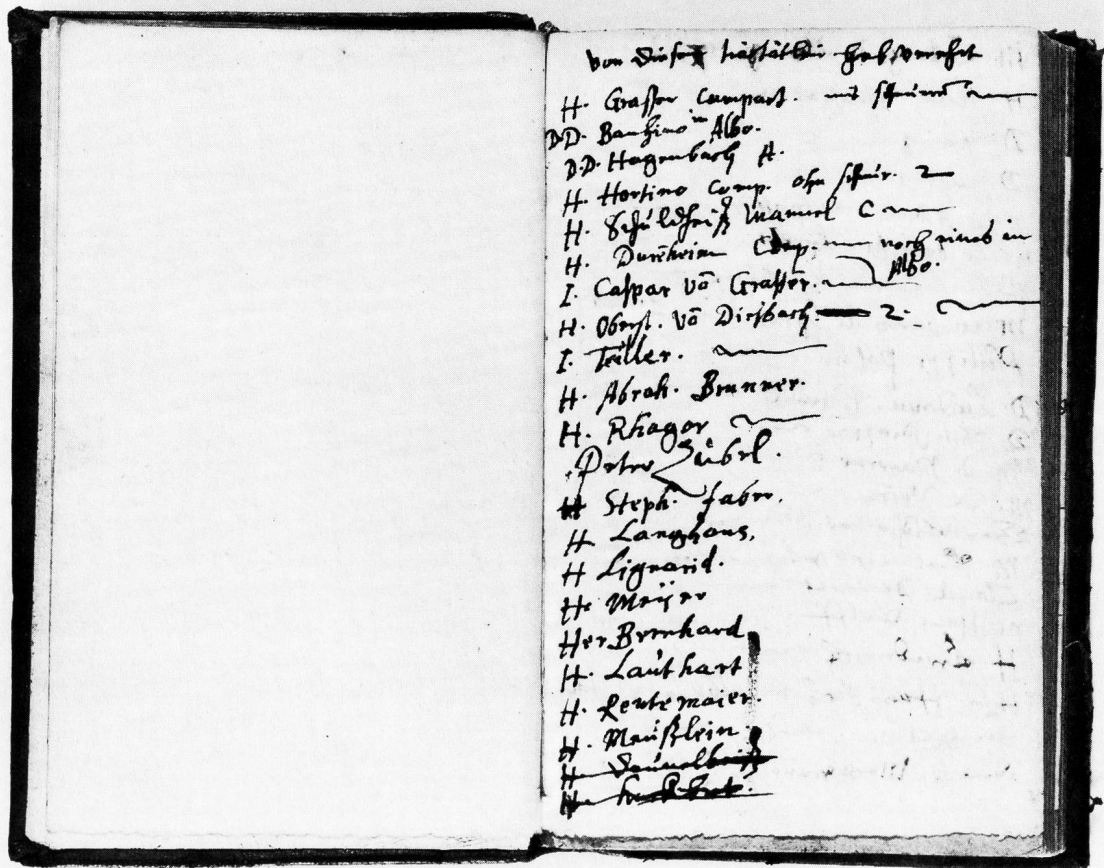 von diesen tractätlin hab verehrt
H. Grasser Compact. mit schnüren
D.D. Bauhino in Albo.
D.D. Hagenbach A.
H. Hortino Comp. ohn schnür. 2
H. Schuldheiß Manuel C
H. Durrheim Comp. noch eines in Albo.
I. Caspar vō Graffer.
H. Oberst. vō Diesbach 2.
I. Teiller.
H. Abrah. Brunner.
H. Rhagor
Peter Zübel.
H Steph. faber.
H Langhans.
H Lignarid.
H Meÿer
Her Bernhard
H. Lauthart
H. Rentemaier.
H. Meüßlein
H
H